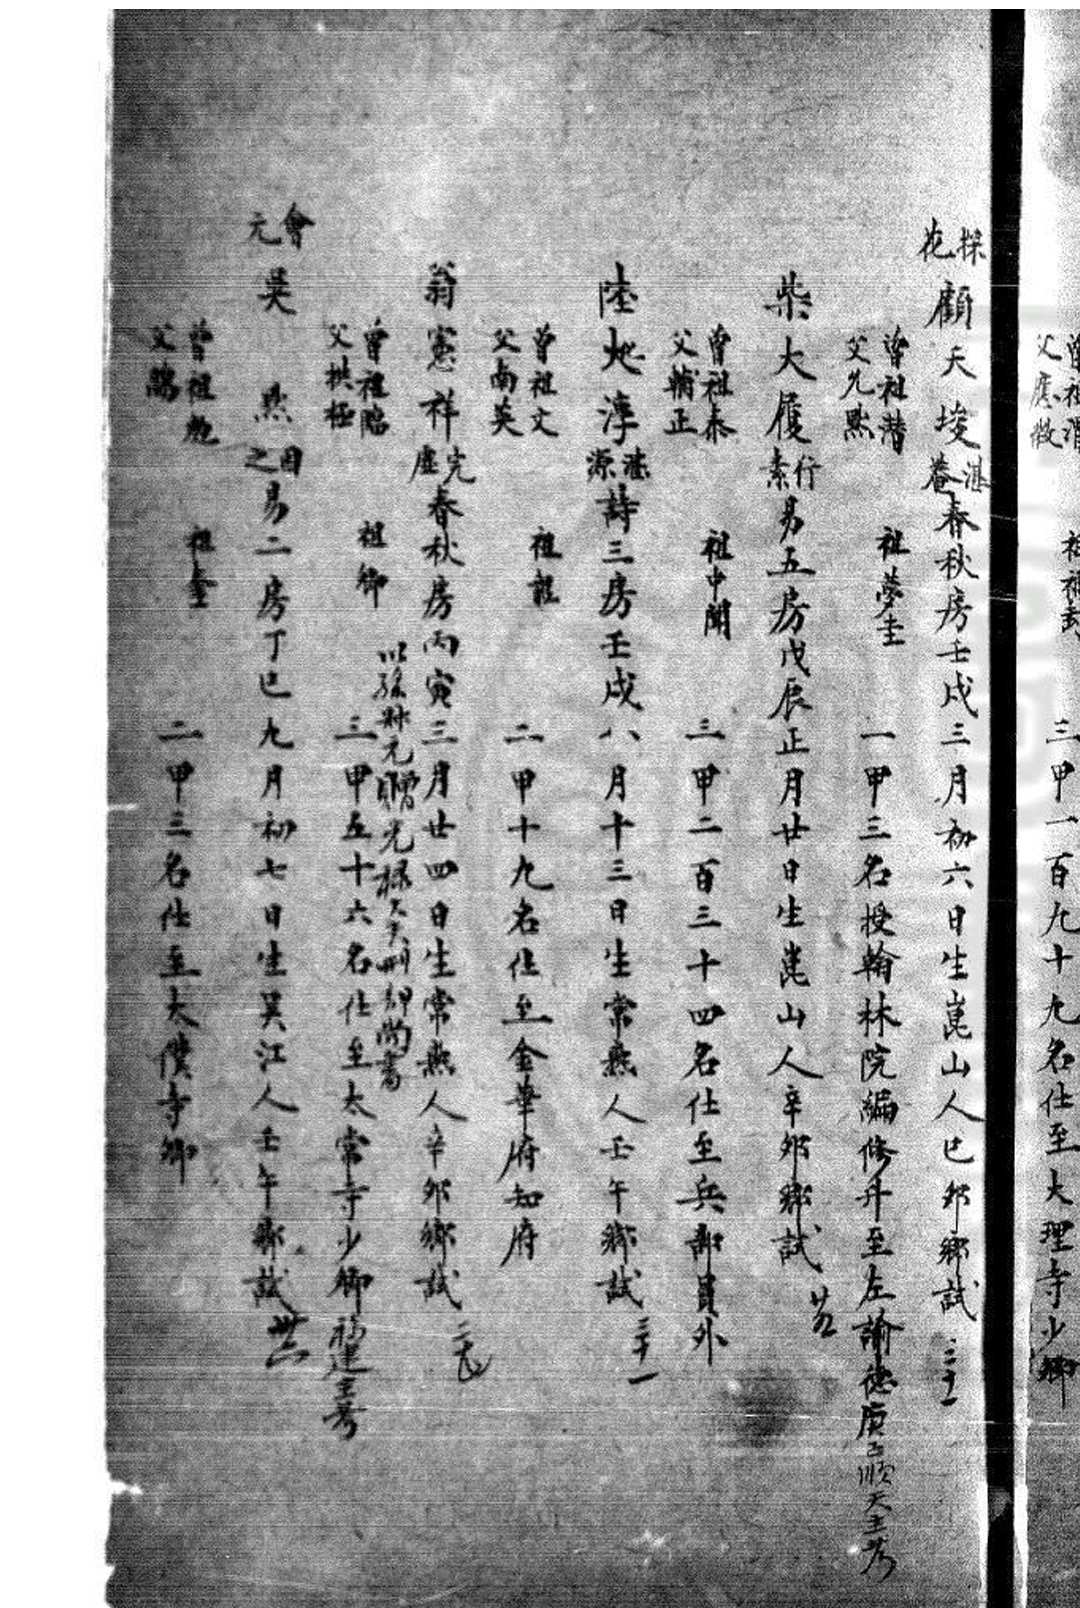 曾祖渭　祖祖武　三甲一百九十九名仕至大理寺少卿
父應徵
探花
顧天埈湛菴春秋房壬戌三月初六日生崑山人己卯鄉試三十一
曾祖潛　祖夢圭　一甲三名授翰林院編修升至左諭德庚子順天主考
父允默
柴大履行素易五房戊辰正月廿日生崑山人辛卯鄉試廿五
曾祖泰　祖中聞　三甲二百三十四名仕至兵部員外
父輔正
陸化淳湛源詩三房壬戌八月十三日生常熟人壬午鄉試三十一
曾祖文　祖龍　二甲十九名仕至金華府知府
父南英
翁憲祥完虛春秋房丙寅三月廿四日生常熟人辛卯鄉試二七
以孫叔元贈光祿大夫刑部尚書
曾祖臨　祖卿　三甲五十六名仕至太常寺少卿福建主考
父拱極
會元
吳默因之易二房丁巳九月初七日生吳江人壬午鄉試卅六
曾祖勉　祖奎　二甲三名仕至太僕寺卿
父鵬